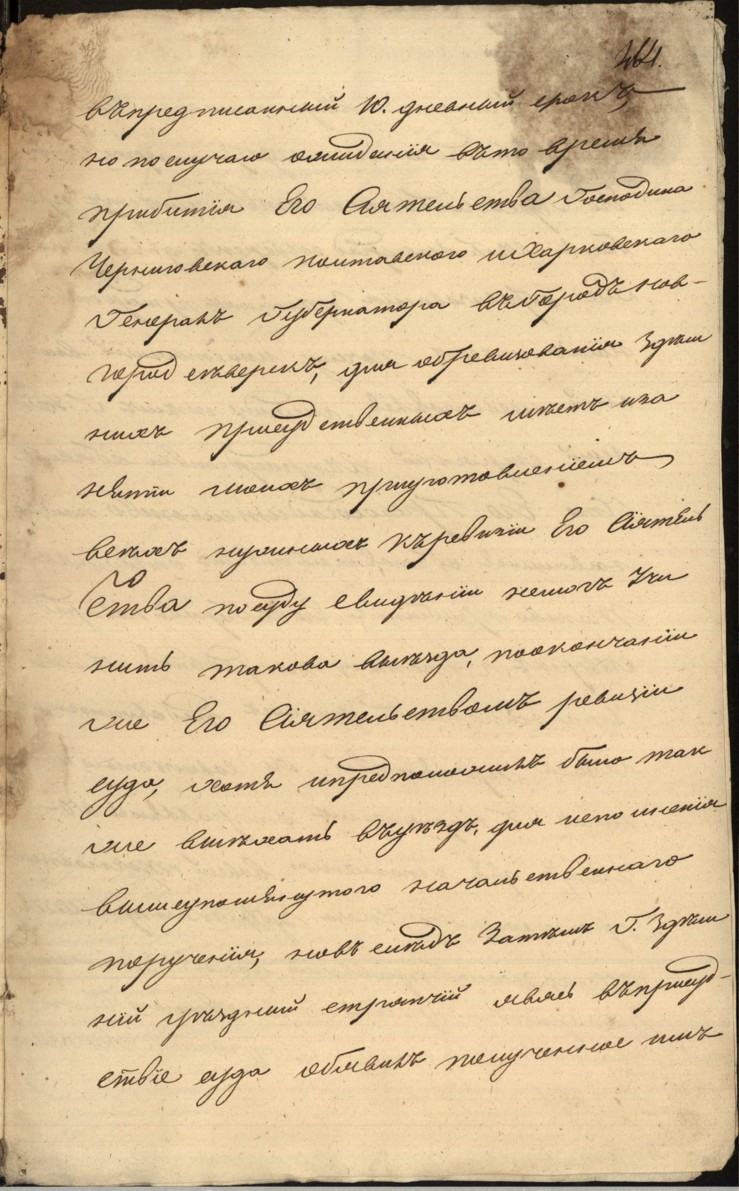 464.
въпредписанный 10. дневный срокъ,
но послучаю ожидания въто время
прибытія Его Сіятельства Господина
Черниговскаго полтавского ихарковскаго
Генералъ Губернатора въ городъ нов-
городсѣверскъ, для обревизования здѣш
нихъ присудственныхъ мѣстъ иза
нятіи моихъ приуготовлениемъ
всѣхъ нужныхъ къревизіи Его Сіятель
ства посуду свидѣнiи немогъ учи
нить такова выѣзда, поокончаніи
же Его Сіятельствомъ ревизіи
суда, хотя ипредположилъ было так
же выѣхать въуѣздъ, для исполнения
вышеупомянутого начальственнаго
поручения, новъ слѣдъ затѣмъ Г. здѣш
ній уѣздный стряпчій явясь въприсуд-
ствіе суда обявилъ полученное имъ